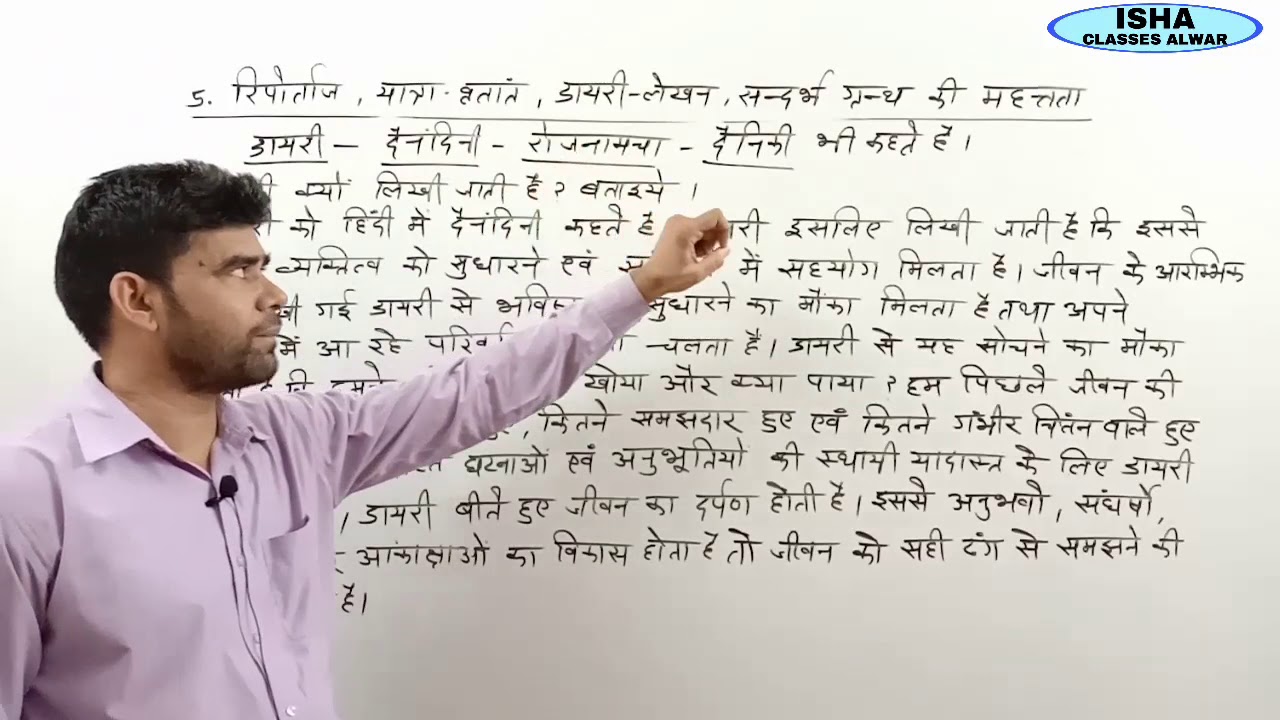 ISHA
CLASSES ALWAR
5. रिपोर्ताज, यात्रा-वृतांत, डायरी-लेखन, सन्दर्भ ग्रन्थ की महत्तता
डायरी – दैनंदिनी - रोजनामचा - दैनिकी भी कहते है।
क्यों लिखी जाती है? बताइये।
को हिंदी में दैनंदिनी कहते है इसलिए लिखी जाती है कि इससे
व्यक्तित्व को सुधारने एवं में सहयोग मिलता है। जीवन के आरम्भिक
गई डायरी से सुधारने का मौका मिलता है तथा अपने
में आ रहे चलता है। डायरी से यह सोचने का मौका
खोया और क्या पाया? हम पिछले जीवन की
, कितने समझदार हुए एवं कितने गंभीर चिंतन वाले हुए
घटनाओं एवं अनुभूतियों की स्थायी यादास्त के लिए डायरी
। डायरी बीते हुए जीवन का दर्पण होती है। इससे अनुभवो, संघर्षो,
आकांक्षाओं का विकास होता है तो जीवन को सही ढंग से समझने की
है।